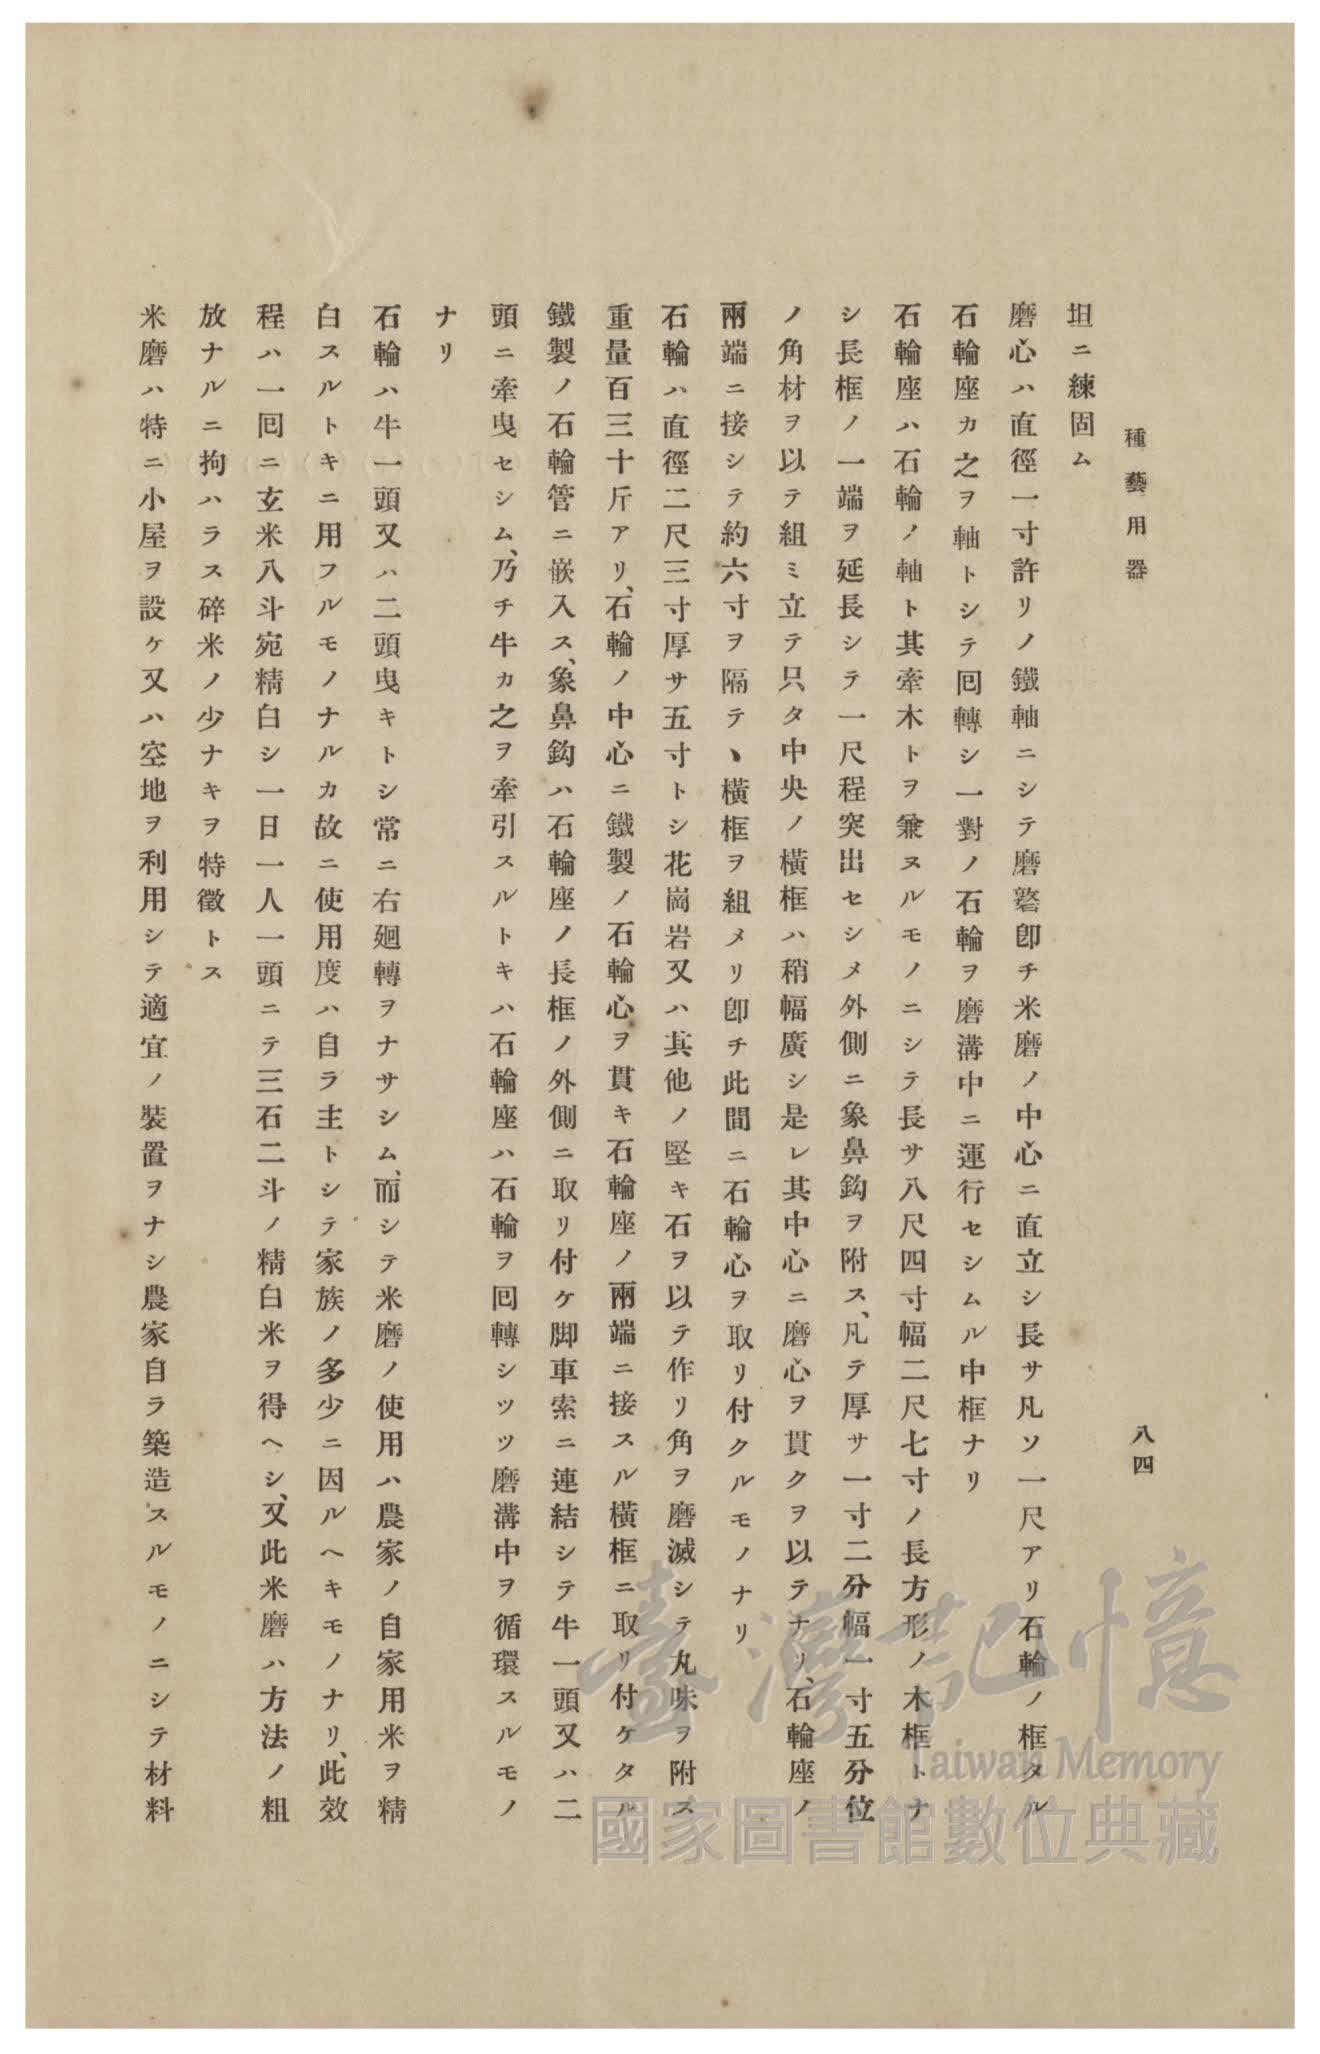 種藝用器
八四
坦ニ練固ム
磨心ハ直徑一寸許リノ鐵軸ニシテ磨礱卽チ米磨ノ中心ニ直立シ長サ凡ソ一尺アリ石輪ノ框タル
石輪座カ之ヲ軸トシテ囘轉シ一對ノ石輪ヲ磨溝中ニ運行セシムル中框ナリ
石輪座ハ石輪ノ軸ト其牽木トヲ兼ヌルモノニシテ長サ八尺四寸幅二尺七寸ノ長方形ノ木框トナ
シ長框ノ一端ヲ延長シテ一尺程突出セシメ外側ニ象鼻鈎ヲ附ス、凡テ厚サ一寸二分幅一寸五分位
ノ角材ヲ以テ組ミ立テ只タ中央ノ橫框ハ稍幅廣シ是レ其中心ニ磨心ヲ貫クヲ以テナリ、石輪座ノ
兩端ニ接シテ約六寸ヲ隔テヽ橫框ヲ組メリ卽チ此間ニ石輪心ヲ取リ付クルモノナリ
石輪ハ直徑二尺三寸厚サ五寸トシ花崗岩又ハ其他ノ堅キ石ヲ以テ作リ角ヲ磨滅シテ丸味ヲ附ス
重量百三十斤アリ、石輪ノ中心ニ鐵製ノ石輪心ヲ貫キ石輪座ノ兩端ニ接スル橫框ニ取リ付ケタル
鐵製ノ石輪管ニ嵌入ス、象鼻鈎ハ石輪座ノ長框ノ外側ニ取リ付ケ脚車索ニ連結シテ牛一頭又ハ二
頭ニ牽曳セシム、乃チ牛カ之ヲ牽引スルトキハ石輪座ハ石輪ヲ囘轉シツツ磨溝中ヲ循環スルモノ
ナリ
石輪ハ牛一頭又ハ二頭曳キトシ常ニ右廻轉ヲナサシム、而シテ米磨ノ使用ハ農家ノ自家用米ヲ精
白スルトキニ用フルモノナルカ故ニ使用度ハ自ラ主トシテ家族ノ多少ニ因ルヘキモノナリ、此效
程ハ一囘ニ玄米八斗宛精白シ一日一人一頭ニテ三石二斗ノ精白米ヲ得ヘシ、又此米磨ハ方法ノ粗
放ナルニ拘ハラス碎米ノ少ナキヲ特徵トス
米磨ハ特ニ小屋ヲ設ケ又ハ空地ヲ利用シテ適宜ノ裝置ヲナシ農家自ラ築造スルモノニシテ材料
臺灣記憶
Taiwan Memory
國家圖書館數位典藏